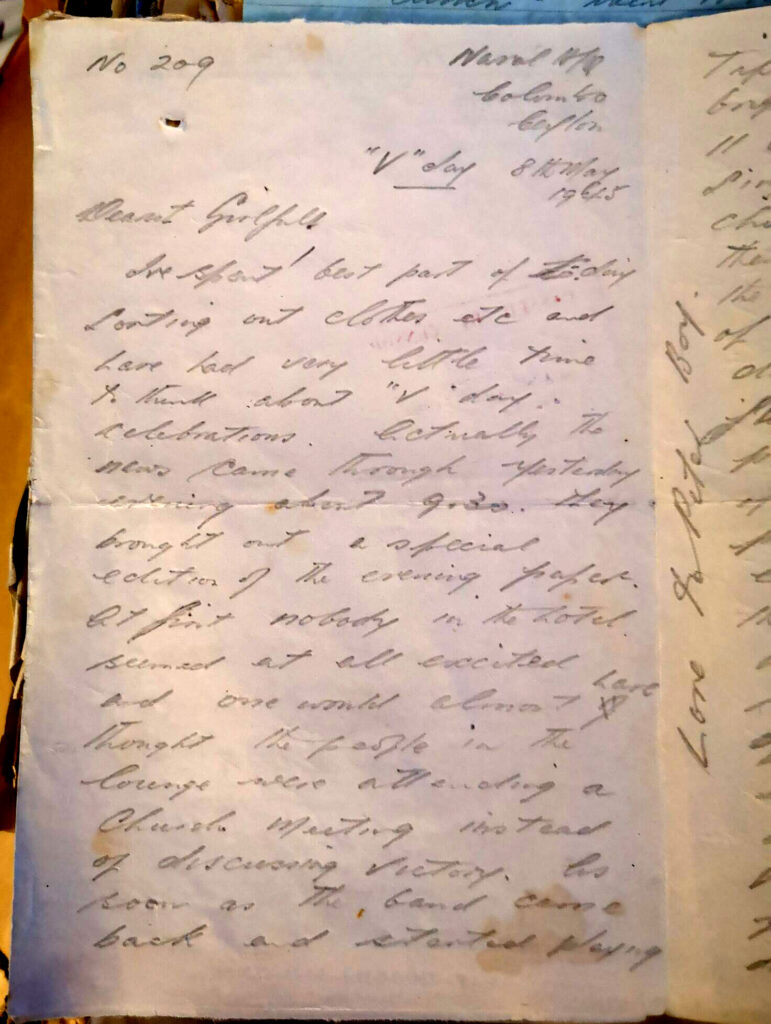 No 209
Naval H/Q
Colombo
Ceylon
"V" day 8th May
1945
Dearest
I've spent best part of to-day
sorting out clothes etc and
have had very little time
to think about "V" day
celebrations. Actually the
news came through yesterday
evening about 9.30. They
brought out a special
edition of the evening paper.
At first nobody in the hotel
seemed at all excited
and one would almost have
thought the people in the
lounge were attending a
Church Meeting instead
of discussing Victory. As
soon as the band came
back and started playing
Love to Boy.